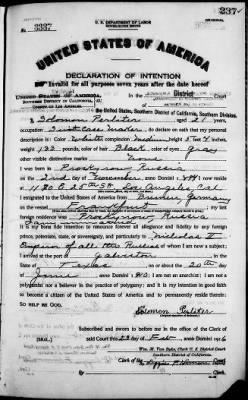 237
U. S. DEPARTMENT OF LABOR
NATURALIZATION SERVICE
ORIGINAL
No. 3337
UNITED STATES OF AMERICA
DECLARATION OF INTENTION
Invalid for all purposes seven years after the date hereof
United States of America,
Southern District of California,
County of Los Angeles.
District
the United States, Southern District of California, Southern Division.
I, Solomon Perliter, aged 21 years,
occupation Suitcase Maker, do declare on oath that my personal
description is: Color White, complexion Medium, height 5 feet 4 inches,
weight 132 pounds, color of hair Black, color of eyes Gray
other visible distinctive marks None
I was born in Russia
on the 2nd day of anno Domini 1; I now reside
at 1180 E 25th St Los Angeles, Cal
I emigrated to the United States of America from Bremen, Germany
on the vessel Frankfurt; my last
foreign residence was Russia
It is my bona fide intention to renounce forever all allegiance and fidelity to any foreign
prince, potentate, state, or sovereignty, and particularly to Nicholas II
Emperor of all the Russias, of whom I am now a subject;
I arrived at the port of Galveston, in the
State of Texas, on or about the 20th day
of June, anno Domini 1910; I am not an anarchist; I am not a
polygamist nor a believer in the practice of polygamy; and it is my intention in good faith
to become a citizen of the United States of America and to permanently reside therein:
SO HELP ME GOD.
Solomon Perliter
Subscribed and sworn to before me in the office of the Clerk of
[SEAL.] said Court this 23 day of Feb, anno Domini 1916
Wm. M. Van Dyke, Clerk U. S. District Court
Southern District of California
Clerk of the